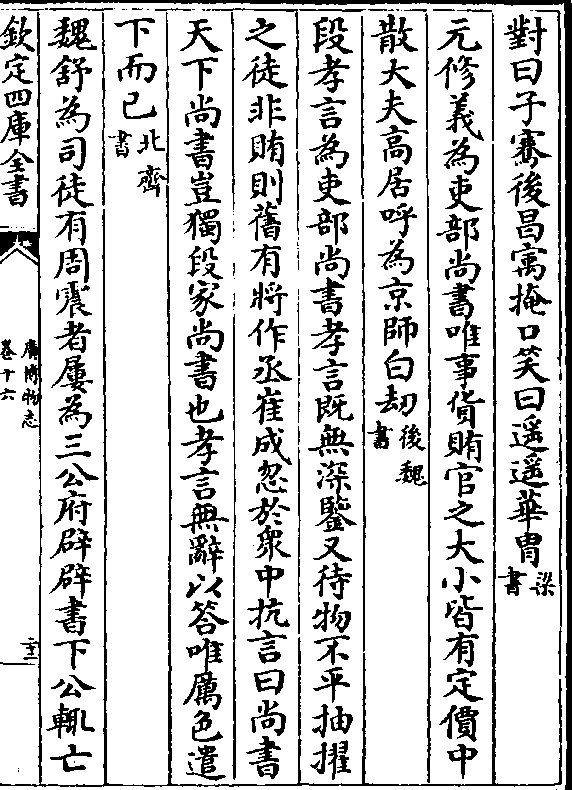 對曰子騫後昌㝢掩口笑曰遥遥華胄梁書
元修義為吏部尚書唯事貨賄官之大小皆有定價中
散大夫高居呼為京師白刼後魏書
段孝言為吏部尚書孝言既無深鑒又待物不平抽擢
之徒非賄則舊有將作丞崔成忽於衆中抗言曰尚書
天下尚書豈獨段家尚書也孝言無辭以答唯厲色遣
下而已北齊書
魏舒為司徒有周震者屢為三公府辟辟書下公輒亡
欽定四庫全書
廣博物志
卷十六